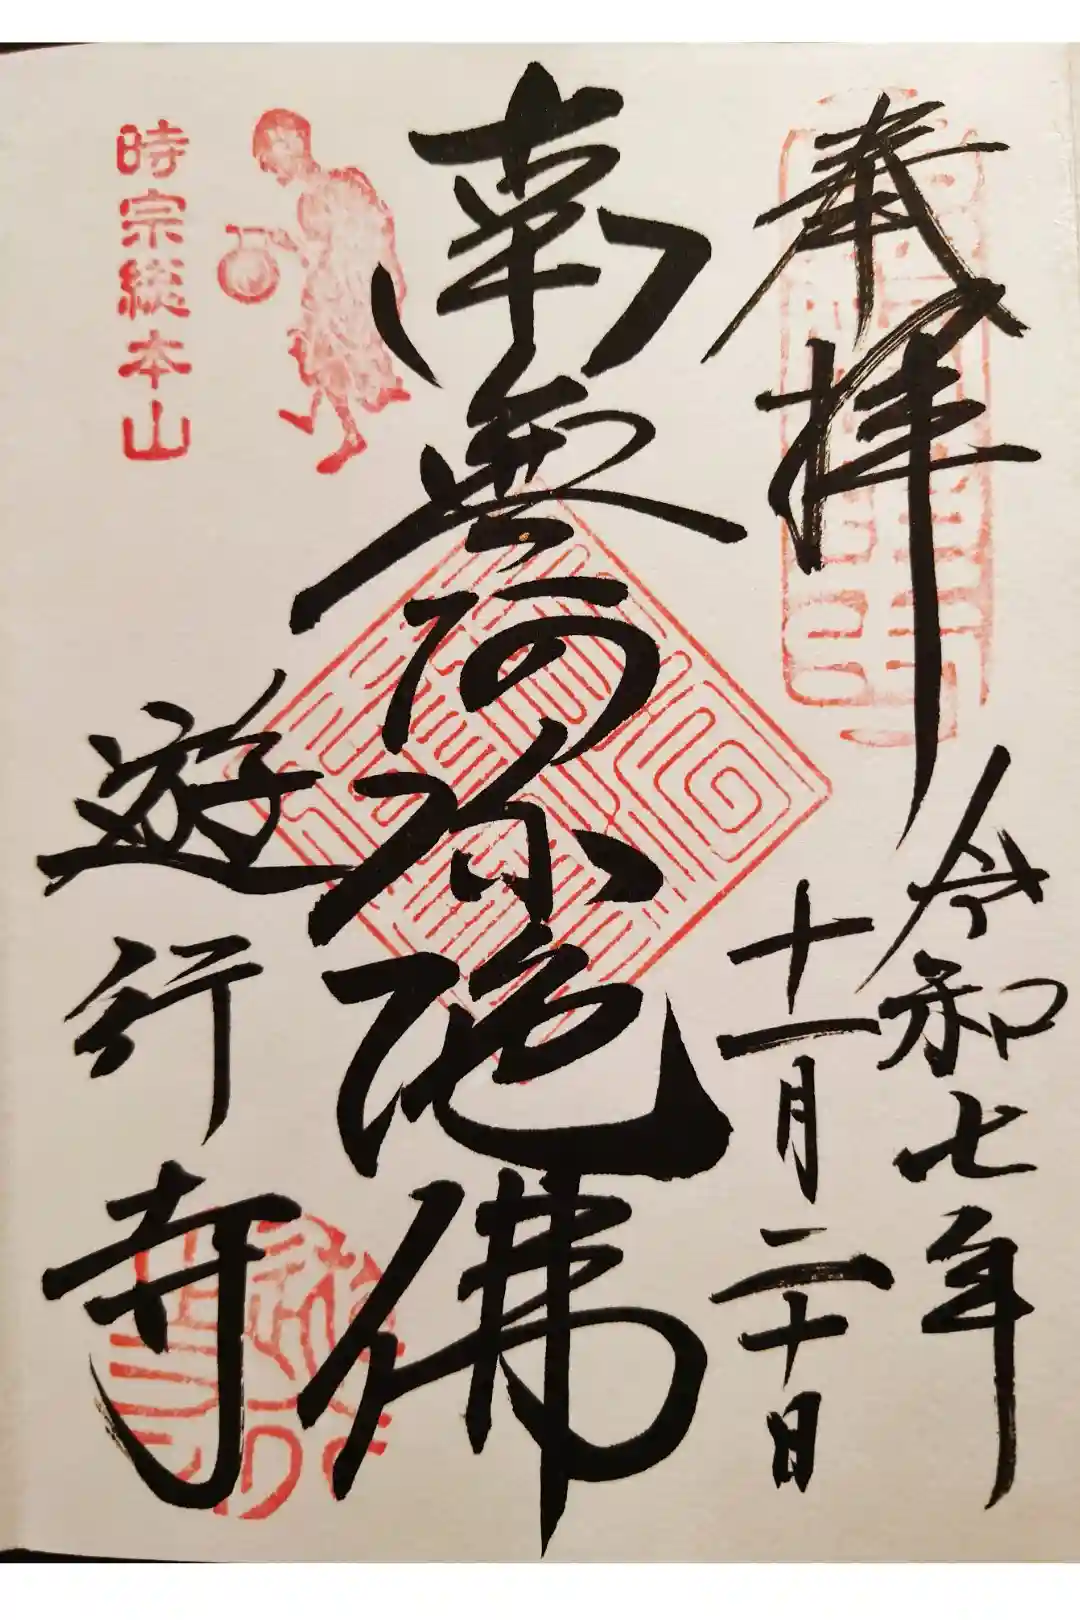 奉拝
令和七年
十一月二十日
南無阿弥陀佛
時宗総本山
遊行寺